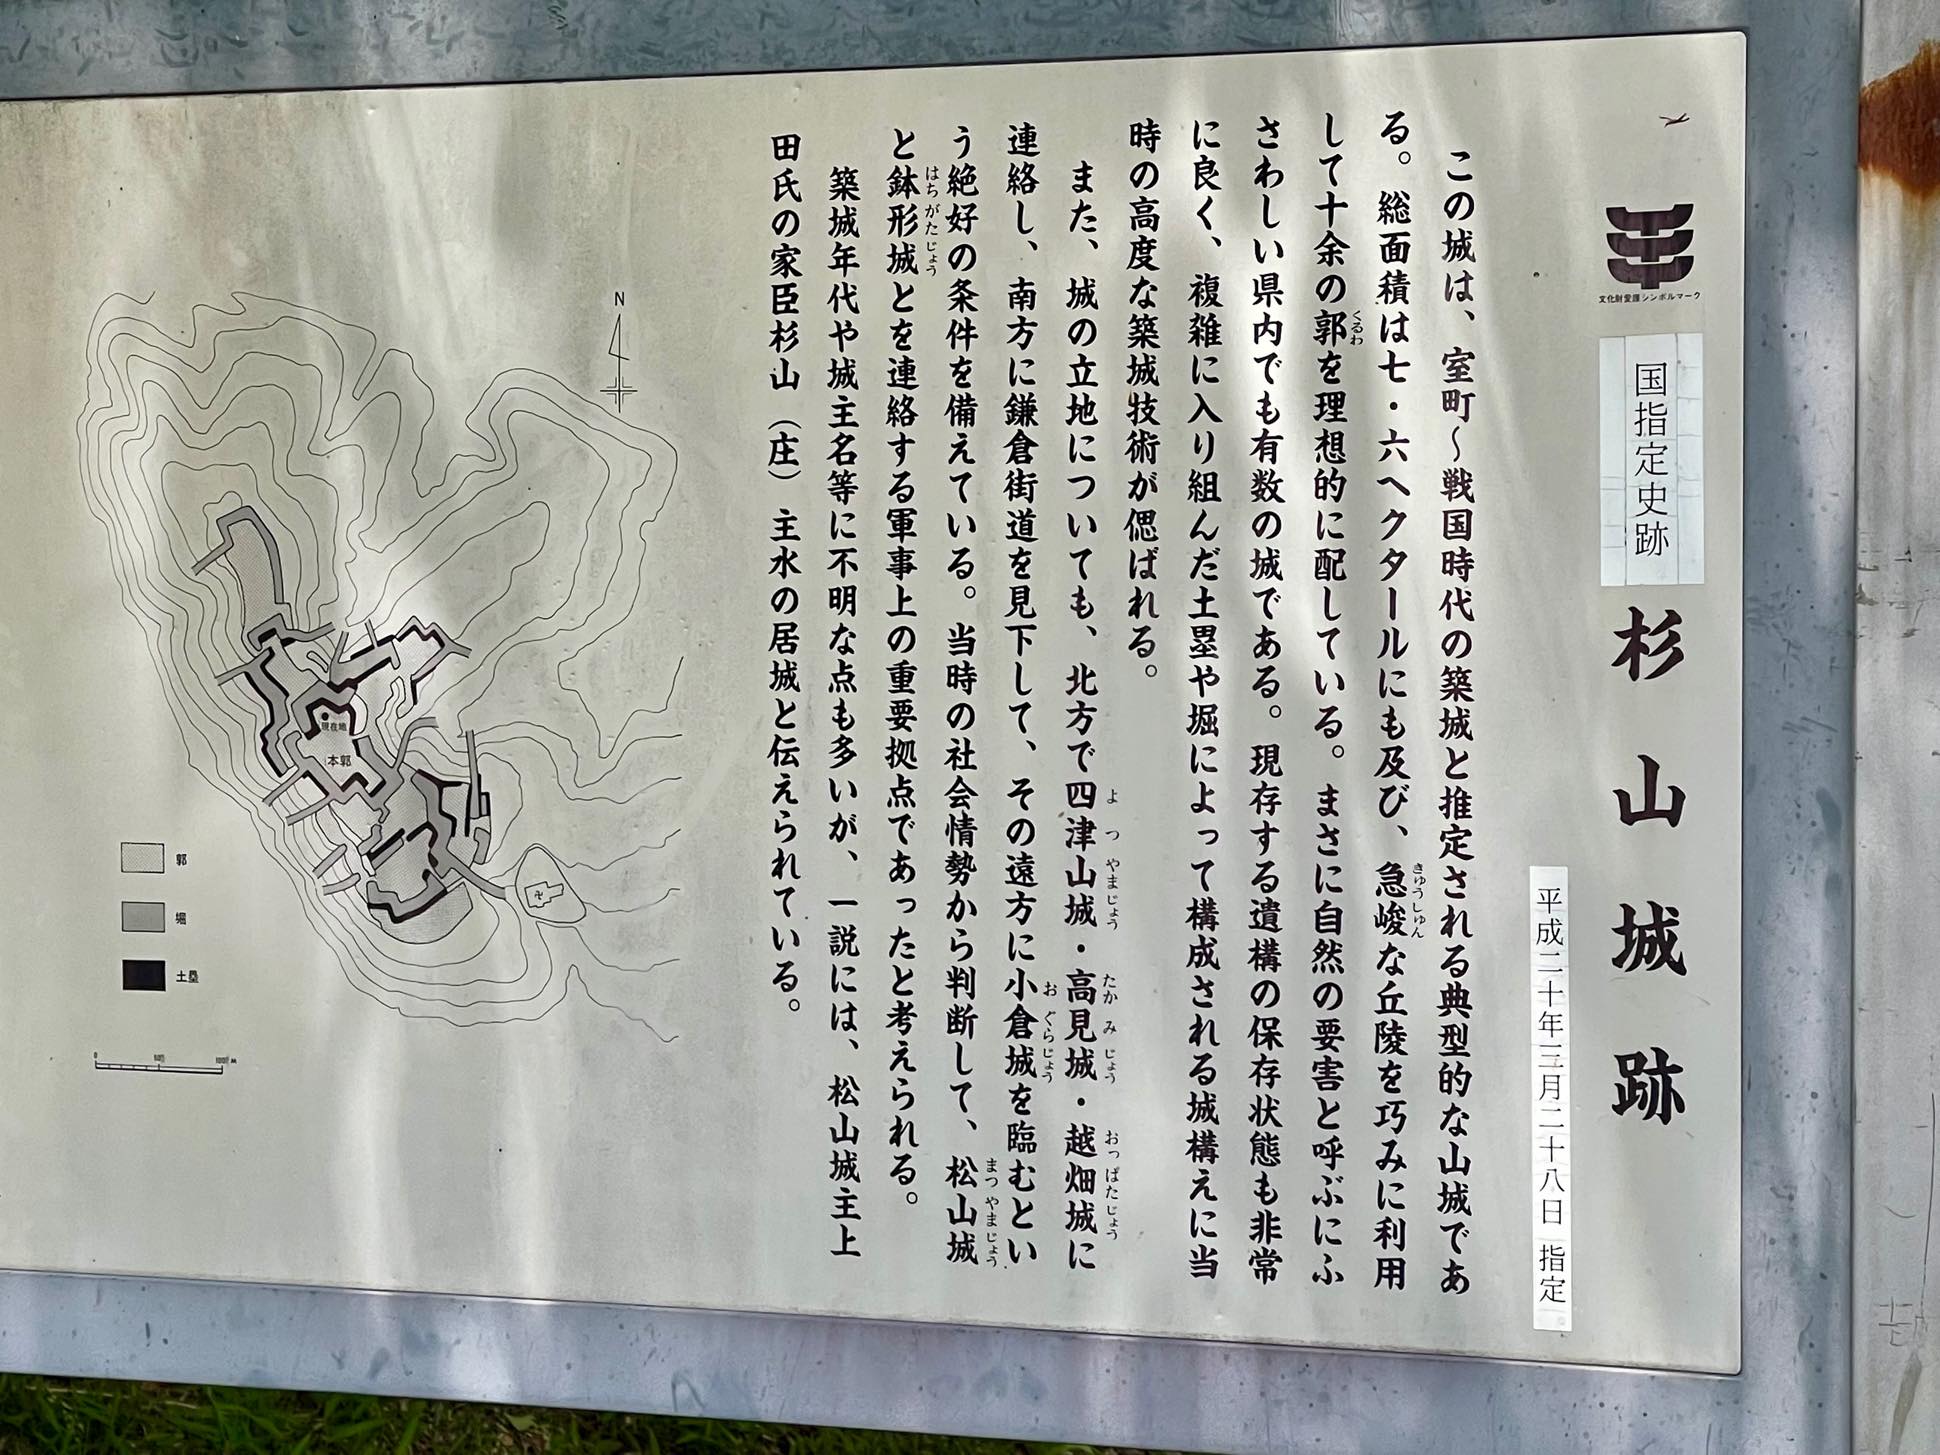 文化財愛護シンボルマーク
国指定史跡 杉山城跡
平成二十年三月二十八日 指定
この城は、室町～戦国時代の築城と推定される典型的な山城であ
る。総面積は七・六ヘクタールにも及び、急峻な丘陵を巧みに利用
きゅうしゅん
して十余の郭を理想的に配している。まさに自然の要害と呼ぶにふ
くるわ
さわしい県内でも有数の城である。現存する遺構の保存状態も非常
に良く、複雑に入り組んだ土塁や堀によって構成される城構えに当
時の高度な築城技術が偲ばれる。
また、城の立地についても、北方で四津山城・高見城・越畑城に
よつやまじょう たかみじょう おっぱたじょう
連絡し、南方に鎌倉街道を見下して、その遠方に小倉城を臨むとい
おぐらじょう
う絶好の条件を備えている。当時の社会情勢から判断して、松山城
まつやまじょう
と鉢形城とを連絡する軍事上の重要拠点であったと考えられる。
はちがたじょう
築城年代や城主名等に不明な点も多いが、一説には、松山城主上
田氏の家臣杉山（庄）主水の居城と伝えられている。
N
現在地
本郭
卍
郭
堀
土塁
0 50 100M